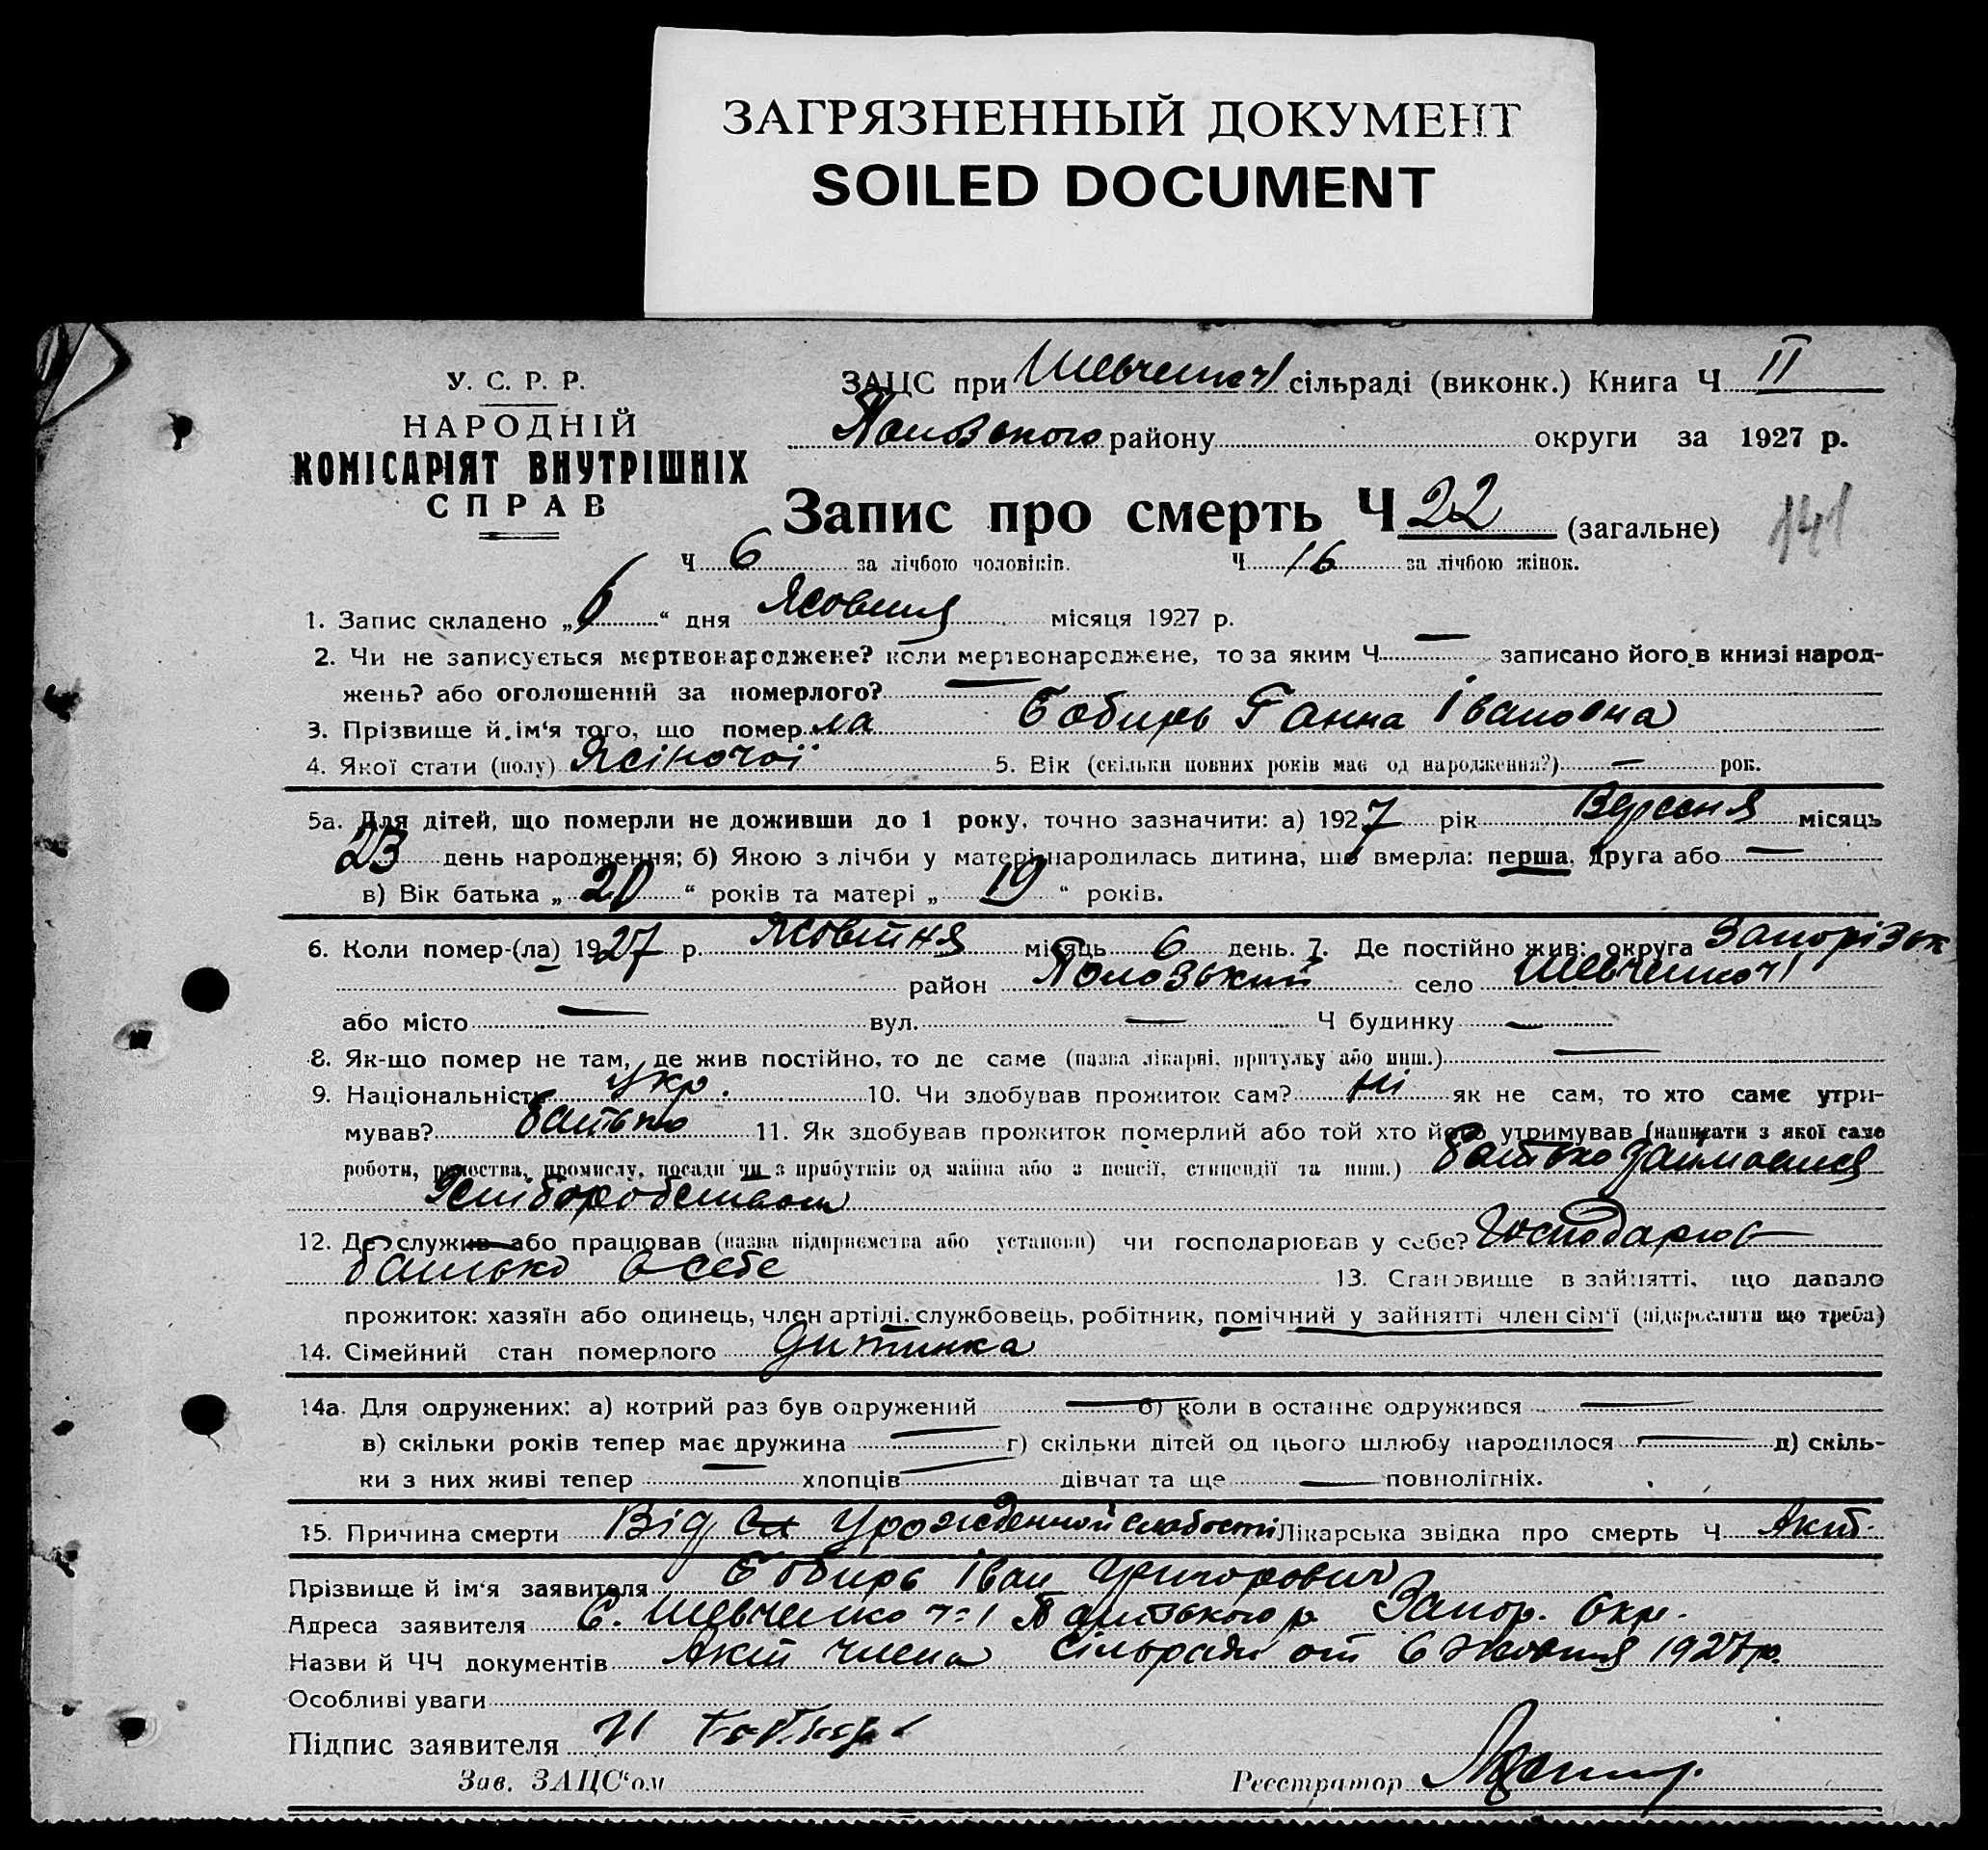 ЗАГРЯЗНЕННЫЙ ДОКУМЕНТ
SOILED DOCUMENT
У. С. Р. Р.
НАРОДНІЙ
КОМІСАРІЯТ ВНУТРІШНІХ
СПРАВ
ЗАЦС при Шевченко ч1 сільраді (виконк.) Книга Ч II
Пологівського району округи за 1927 р.
Запис про смерть Ч 22 (загальне)
141
Ч 6 за лічбою чоловіків. Ч 16 за лічбою жінок.
1. Запис складено „6“ дня Жовтня місяця 1927 р.
2. Чи не записується мертвонароджене? коли мертвонароджене, то за яким Ч — записано його в книзі народ-
жень? або оголошений за померлого? —
3. Прізвище й ім'я того, що помер ла Бобирь Ганна Івановна
4. Якої стати (полу) Жіночої 5. Вік (скільки повних років має од народження?) — рок.
5а. Для дітей, що померли не доживши до 1 року, точно зазначити: а) 1927 рік Вересня місяць
23 день народження; б) Якою з лічби у матері народилась дитина, що вмерла: перша, друга або —
в) Вік батька „20“ років та матері „19“ років.
6. Коли помер-(ла) 1927 р. Жовтня місяць 6 день. 7. Де постійно жив: округа Запорізьк
район Пологзький село Шевченко ч1
або місто — вул. — Ч будинку —
8. Як-що помер не там, де жив постійно, то де саме (назва лікарні, притулку або инш.) —
9. Національність укр. 10. Чи здобував прожиток сам? Ні як не сам, то хто саме утри-
мував? батько 11. Як здобував прожиток померлий або той хто його утримував (написати з якої саме
роботи, ремества, промислу, посади чи з прибутків од майна або з пенсії, стипендії та инш.) батько займаеться
Хліборобством
12. Де служив або працював (назва підприємства або установи) чи господарював у себе? Господарює
батько в себе 13. Становище в зайнятті, що давало
прожиток: хазяїн або одинець, член артілі, службовець, робітник, помічний у зайнятті член сім'ї (підкреслити що треба)
14. Сімейний стан померлого дитинка
14а. Для одружених: а) котрий раз був одружений — б) коли в останнє одружився —
в) скільки років тепер має дружина — г) скільки дітей од цього шлюбу народилося — д) скіль-
ки з них живі тепер — хлопців — дівчат та ще — повнолітніх.
15. Причина смерти Від Урожденной слабості Лікарська звідка про смерть Ч Акт.
Прізвище й ім'я заявителя Бобирь Іван Григорович
Адреса заявителя С. Шевченко ч=1 р Запор. Окр.
Назви й ЧЧ документів Акт члена Сільради от 6 жовтня 1927 р.
Особливі уваги
Підпис заявителя И Бобирь
Зав. ЗАЦС'ом Реєстратор